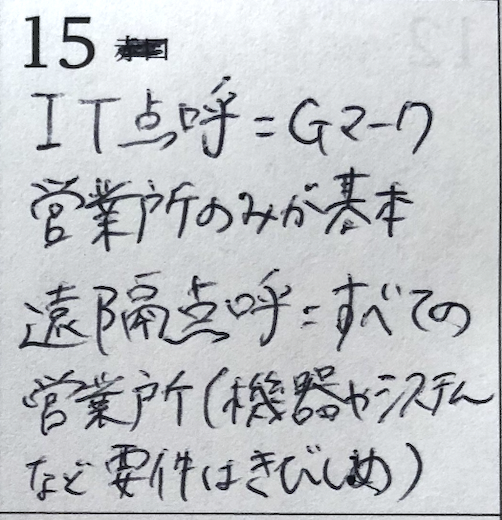 15
IT点呼=Gマーク
営業所のみが基本
遠隔点呼=すべての
営業所(機器やシステム
など要件はきびしめ)